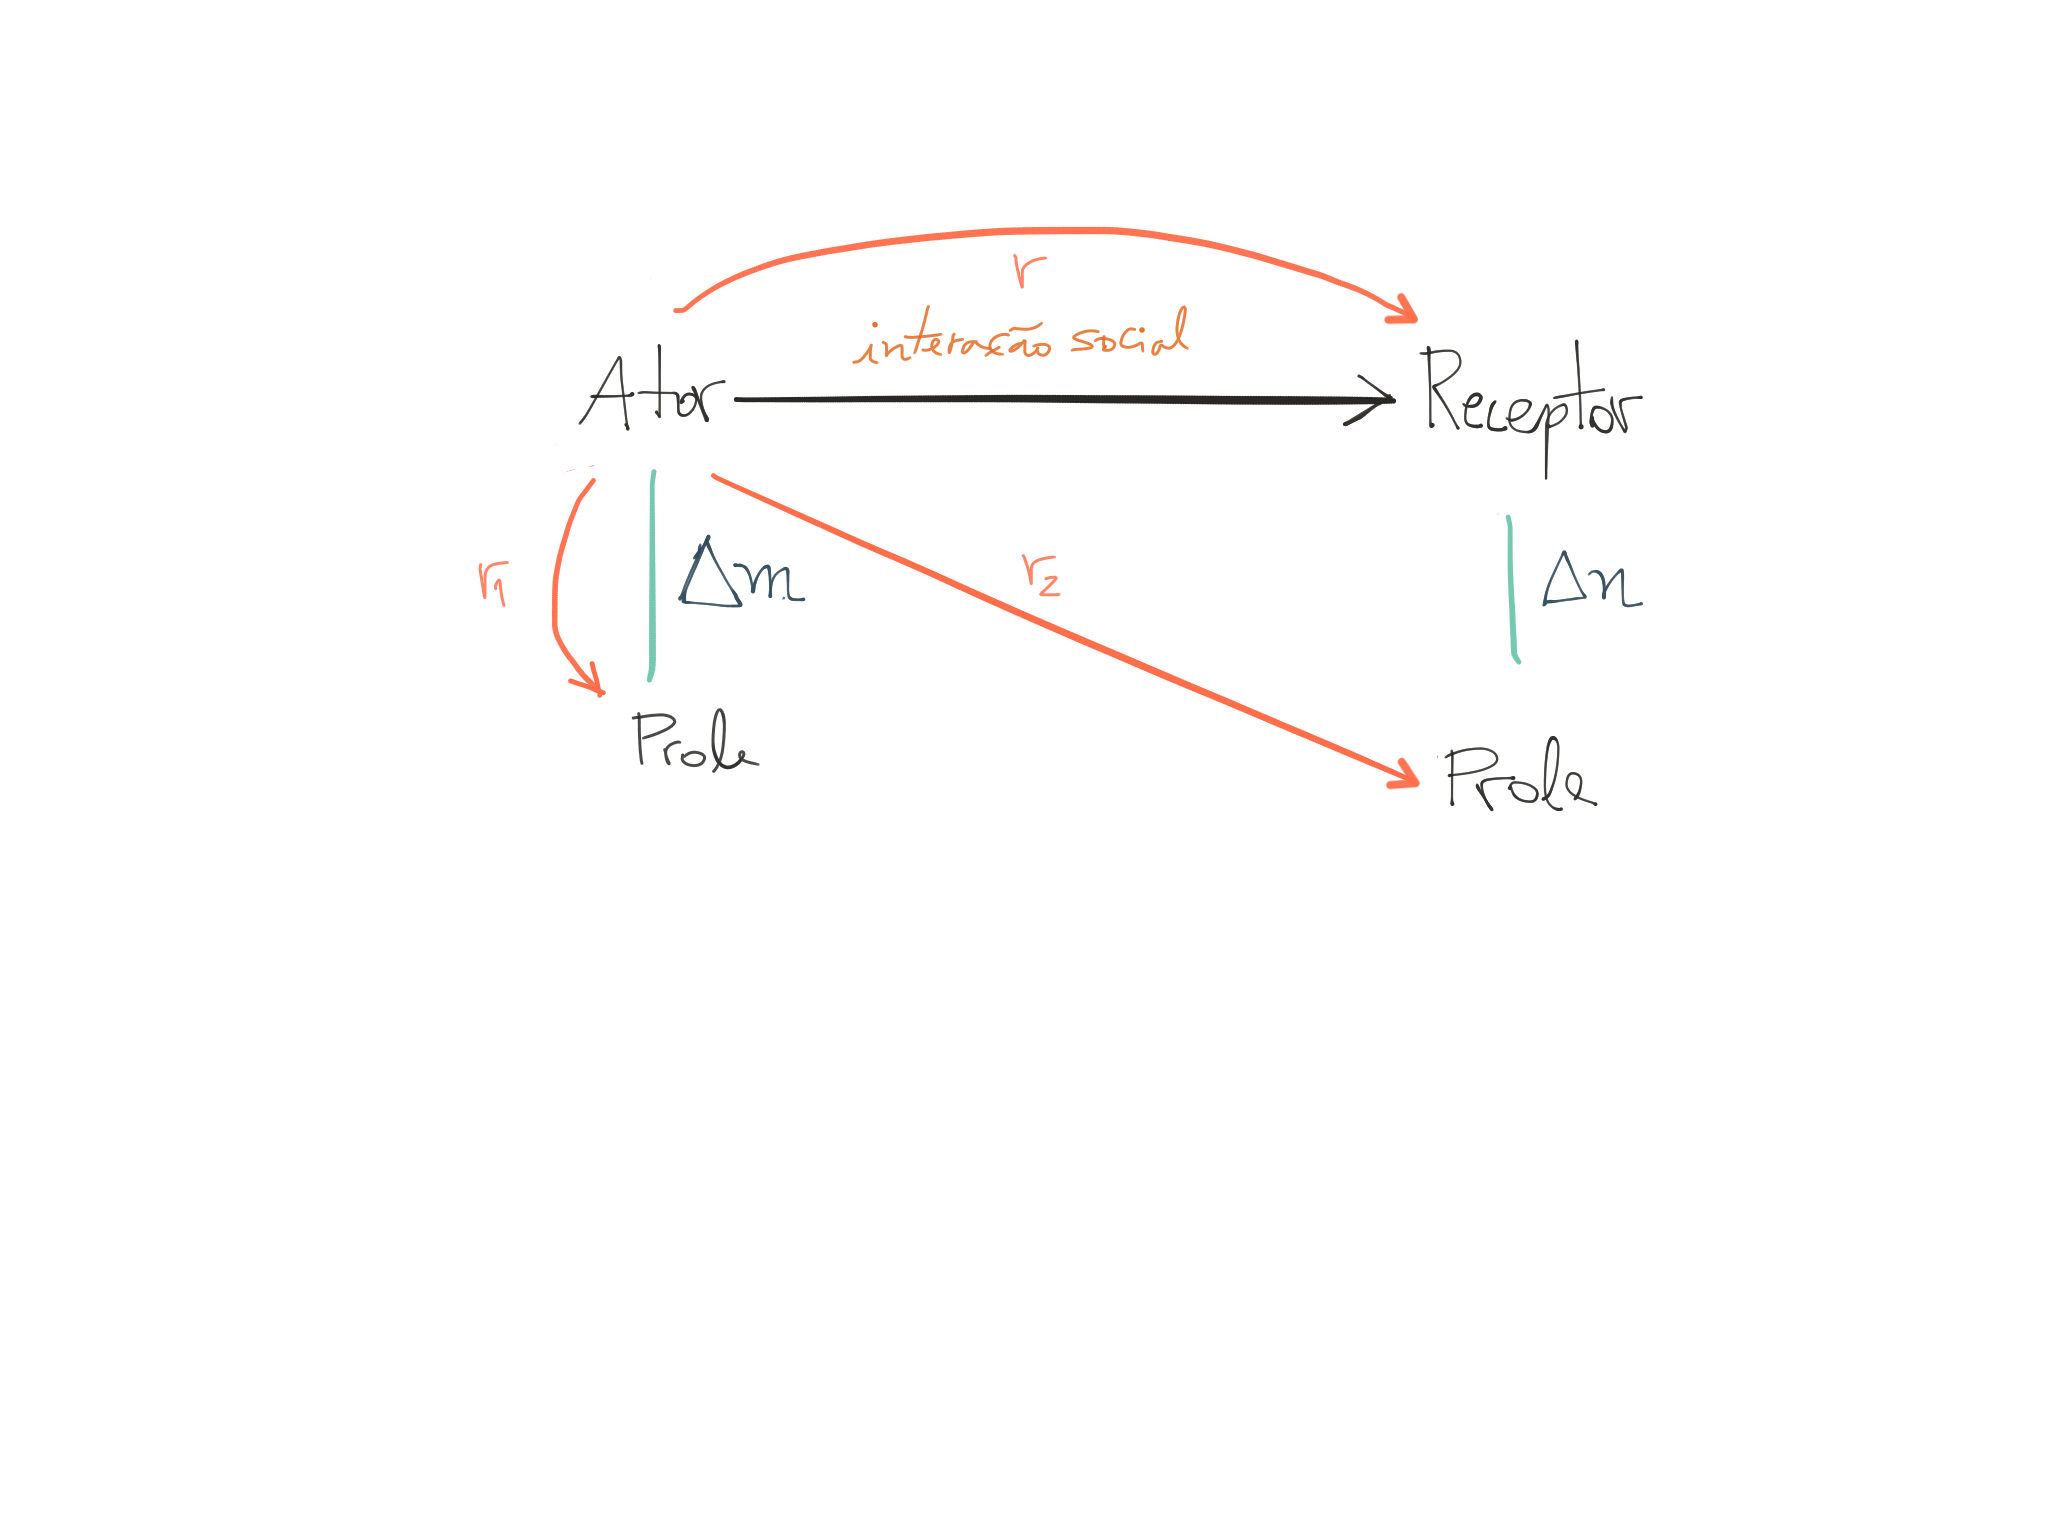 r
interação social
Ator
Receptor
r1
Δm
r2
Δn
Prole
Prole